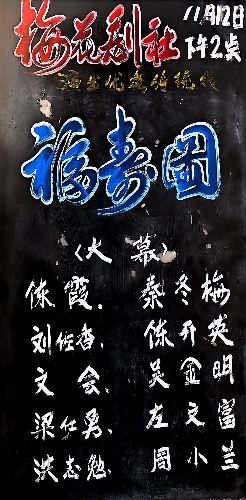 梅花剧社
11月12日
下午2点
演出优秀传统戏
福寿图
〈大幕〉
陈霞、 秦冬梅
刘红香、 陈开英
文会、 吴金明
梁红勇、 左文富
洪志勉、 周小兰